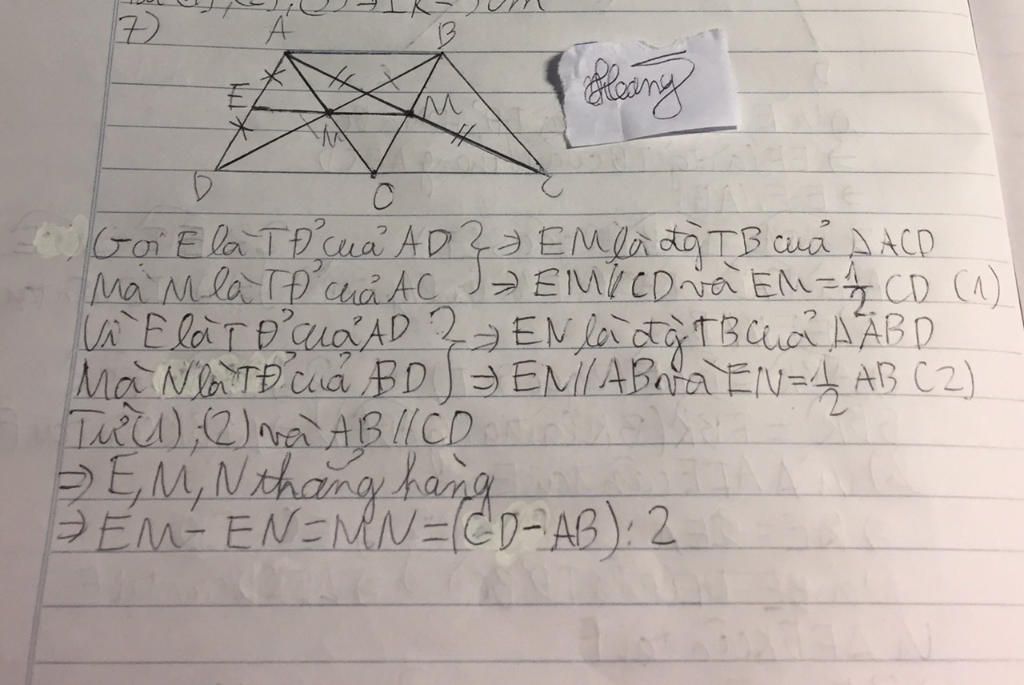 7)
A
B
E
N
M
D
C
C
Gọi E là TĐ' của AD } ⇒ EM là đg TB của ΔACD
Mà M là TĐ' của AC } ⇒ EM // CD và EM = 1/2 CD (1)
Vì E là TĐ' của AD } ⇒ EN là đg TB của ΔABD
Mà N là TĐ' của BD } ⇒ EN // AB và EN = 1/2 AB (2)
Từ (1); (2) và AB // CD
⇒ E, M, N thẳng hàng
⇒ EM - EN = MN = (CD - AB) : 2